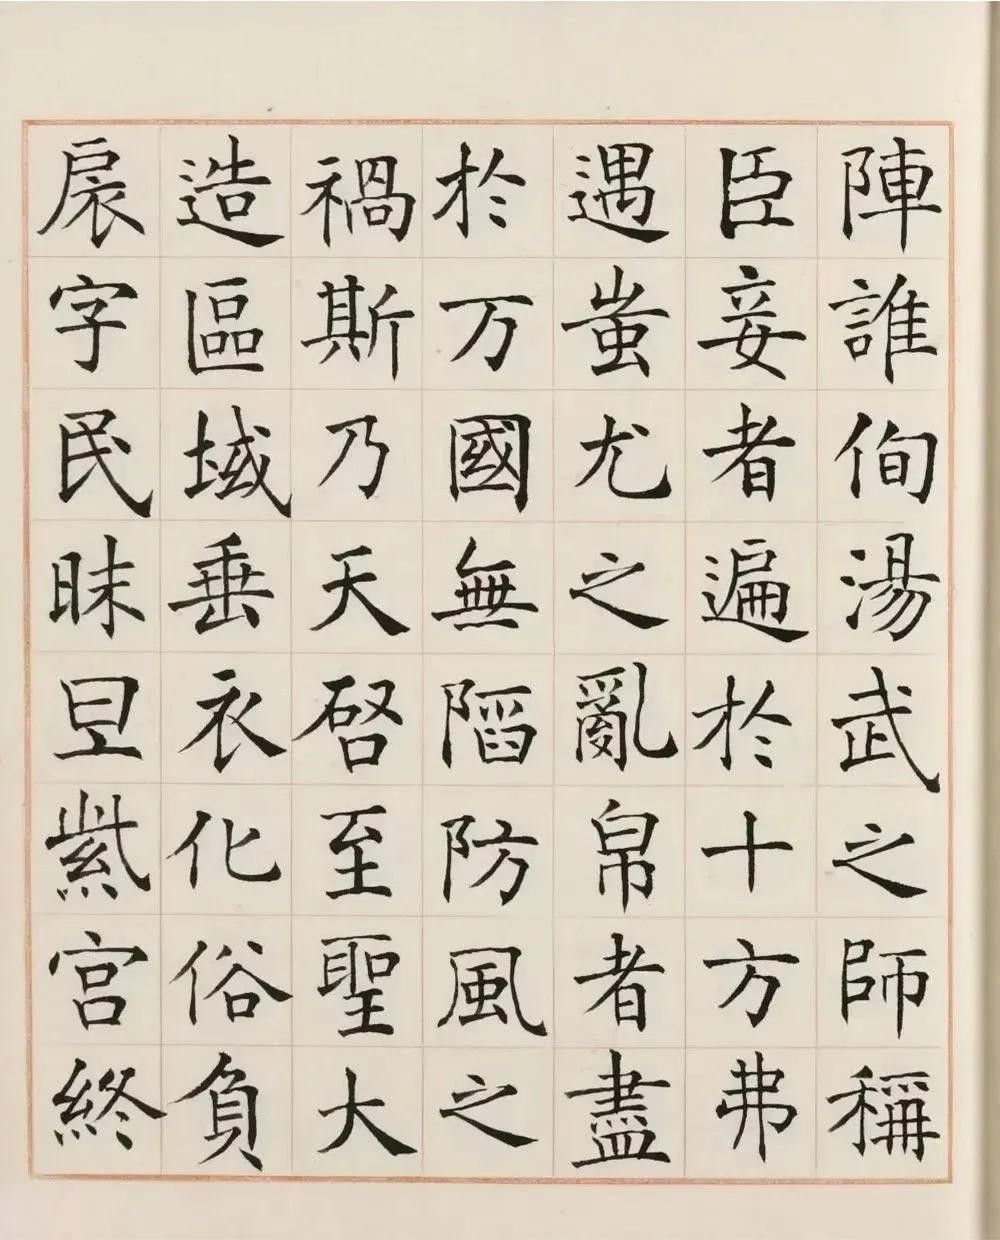 陣誰侚湯武之師稱
臣妾者遍於十方弗
遇蚩尤之亂帛者盡
於万國無陷防風之
禍斯乃天啓至聖大
造區域垂衣化俗負
扆字民昧旦紫宮終